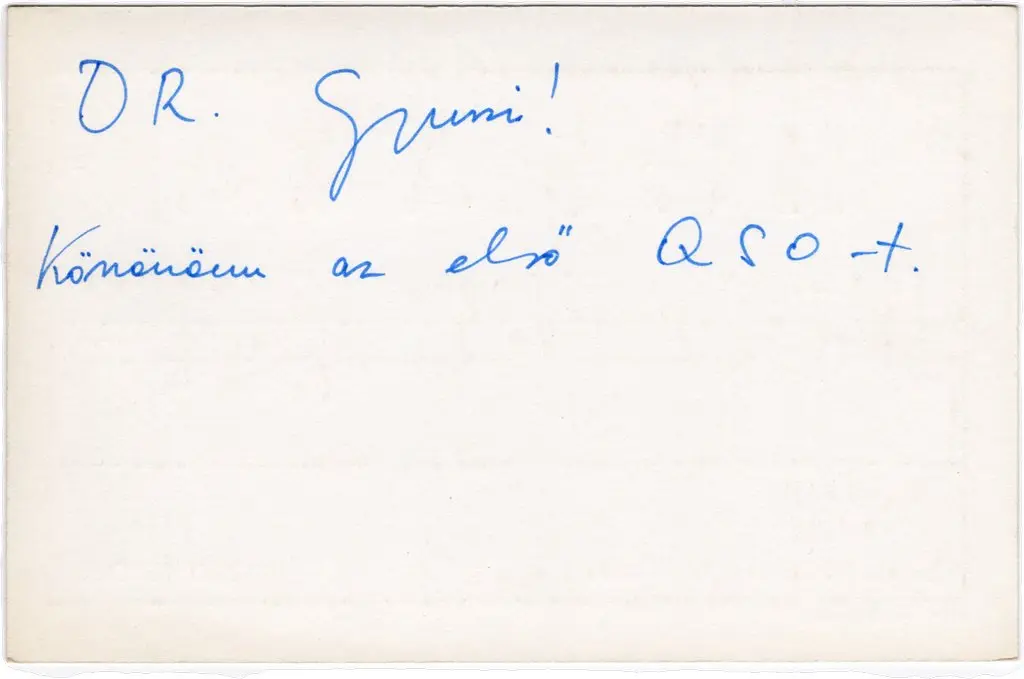 DR. Gyuszi!
Köszönöm az első QSO-t.